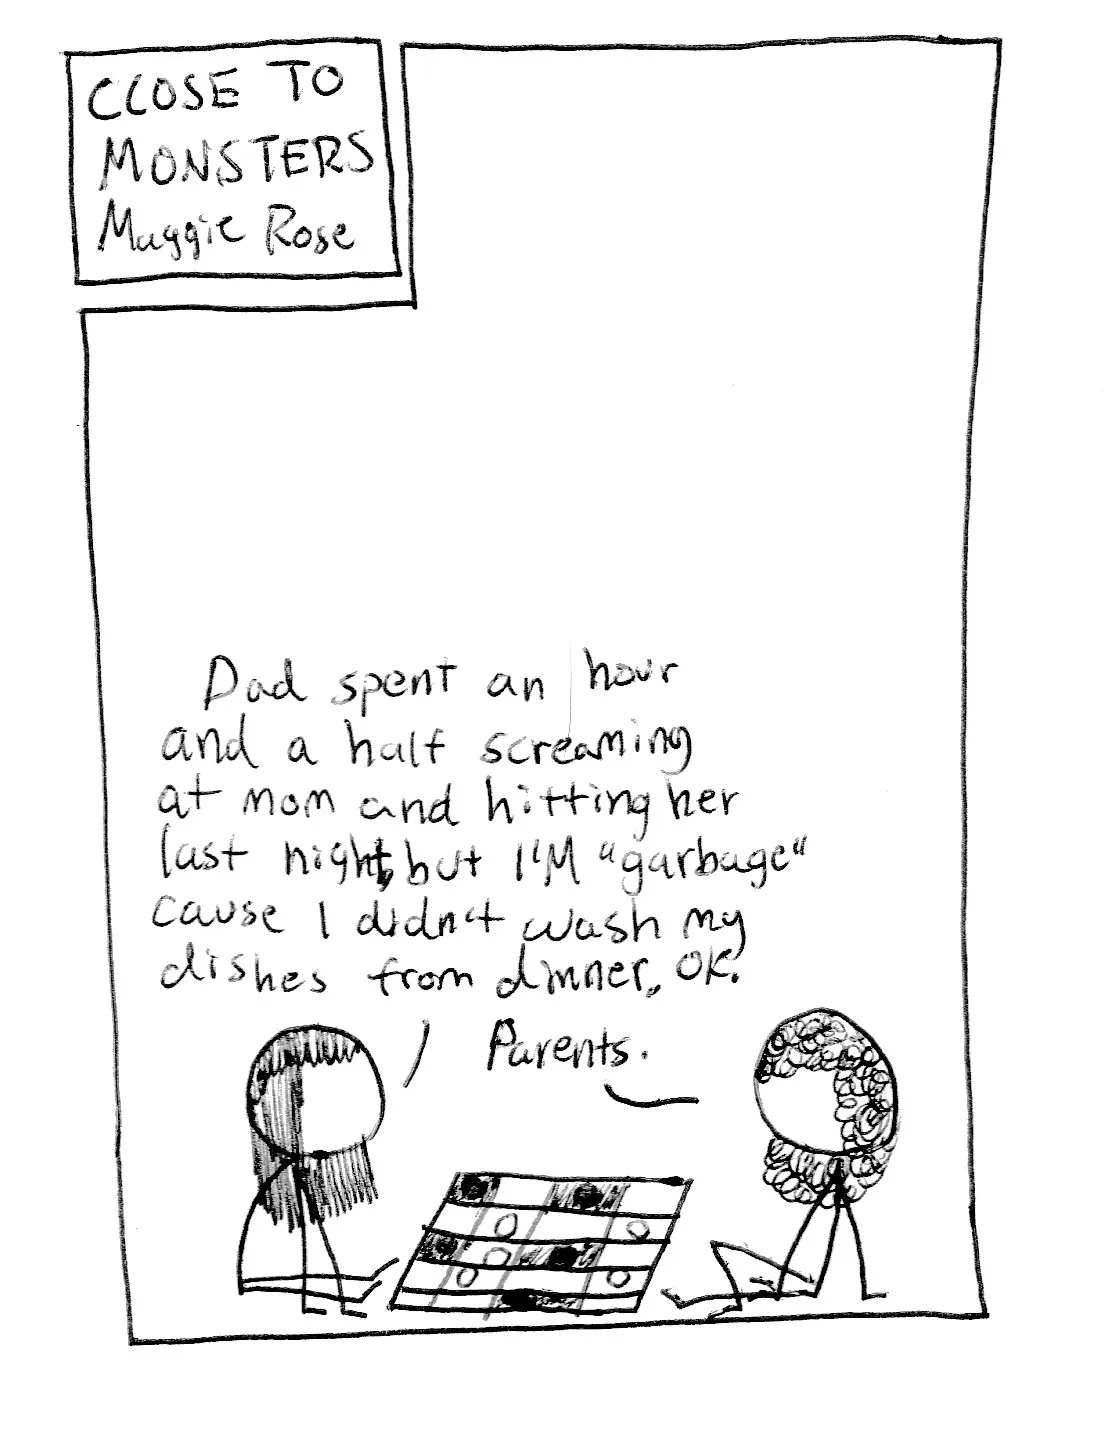 CLOSE TO
MONSTERS
Maggie Rose
Dad spent an hour
and a half screaming
at mom and hitting her
last night, but I'M "garbage"
cause I didn't wash my
dishes from dinner. OK.
Parents.